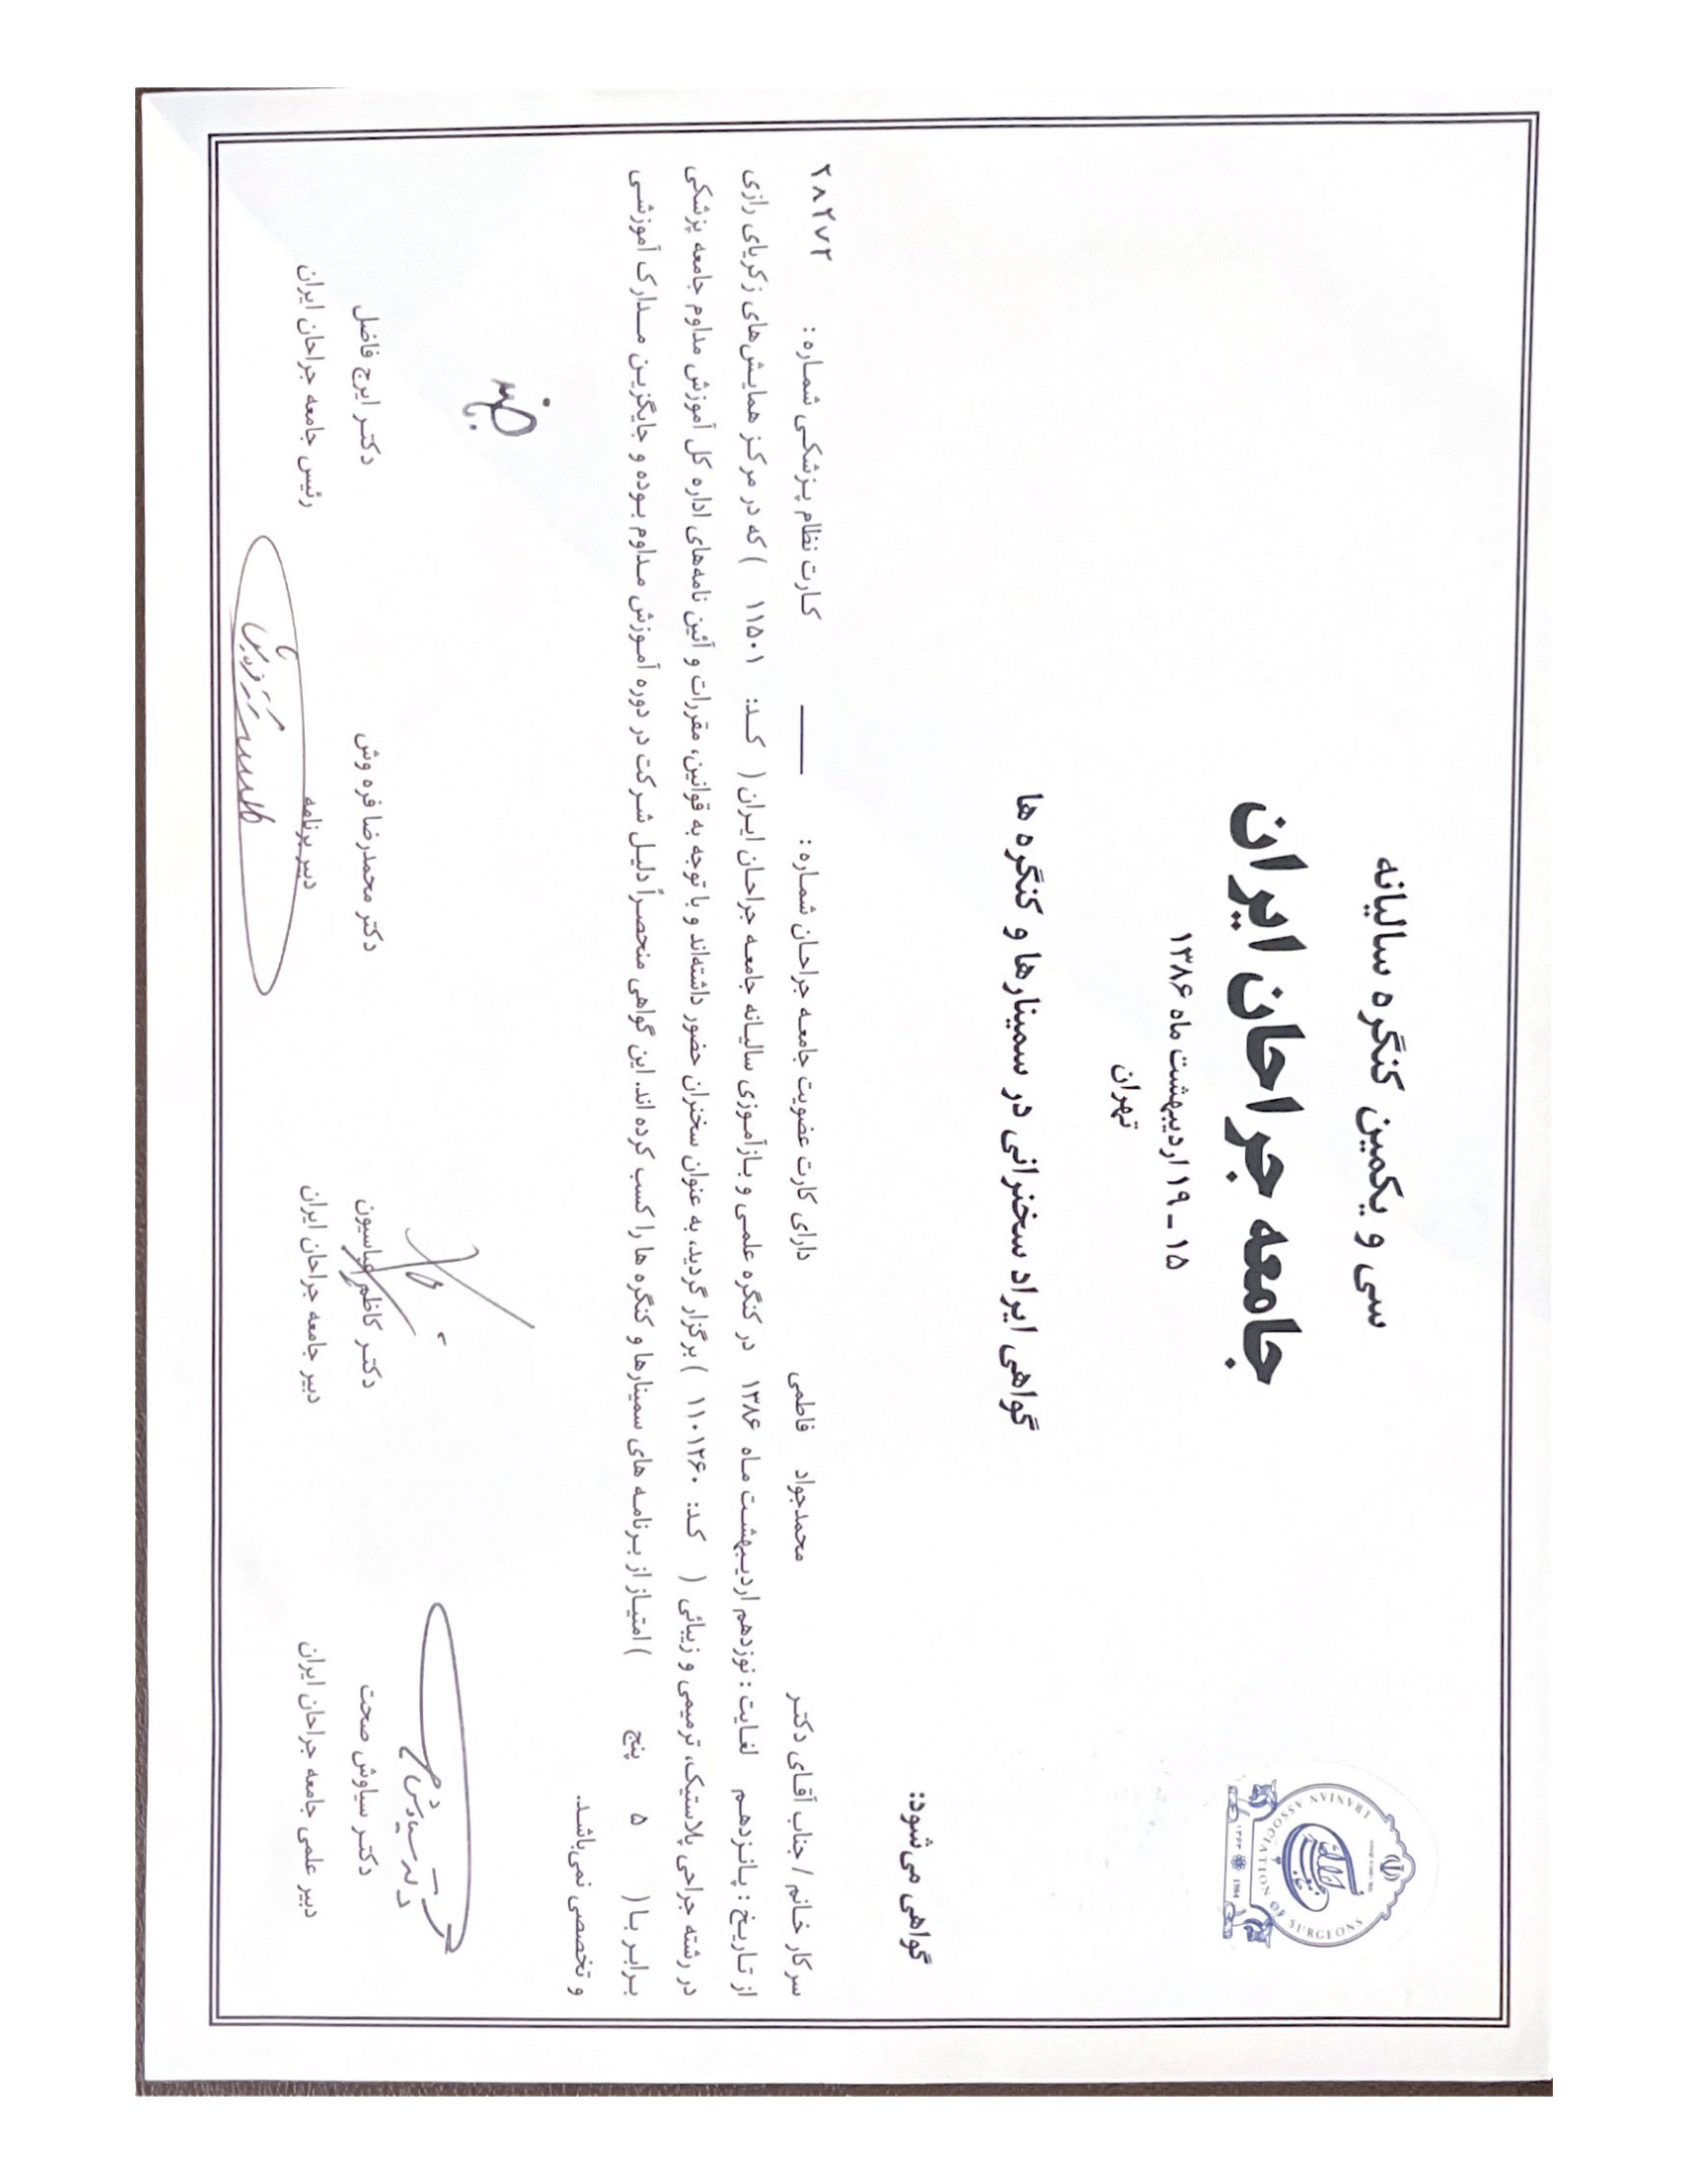 سی و یکمین کنگره سالیانه
جامعه جراحان ایران
۱۵ ـ ۱۹ اردیبهشت ماه ۱۳۸۶
تهران
IRANIAN ASSOCIATION OF SURGEONS
۱۳۶۳ 1984
گواهی ایراد سخنرانی در سمینارها و کنگره ها
گواهی می‌شود:
سرکار خانم / جناب آقای دکتر محمدجواد فاطمی دارای کارت عضویت جامعه جراحان شماره : ــــــ کارت نظام پزشکی شماره : ۲۸۲۷۲
از تاریخ : پانزدهم لغایت : نوزدهم اردیبهشت ماه ۱۳۸۶ در کنگره علمی و بازآموزی سالیانه جامعه جراحان ایران ( کد: ۱۱۵۰۱ ) که در مرکز همایش‌های زکریای رازی
در رشته جراحی پلاستیک، ترمیمی و زیبائی ( کد: ۱۱۰۱۲۶۰ ) برگزار گردید، به عنوان سخنران حضور داشته‌اند و با توجه به قوانین، مقررات و آئین نامه‌های اداره کل آموزش مداوم جامعه پزشکی
برابر با ( ۵ پنج ) امتیاز از برنامه های سمینارها و کنگره ها را کسب کرده اند. این گواهی منحصراً دلیل شرکت در دوره آموزش مداوم بوده و جایگزین مدارک آموزشی
و تخصصی نمی‌باشد.
دکتر سیاوش صحت دکتر کاظم عباسیون دکتر محمدرضا فره وش دکتر ایرج فاضل
دبیر علمی جامعه جراحان ایران دبیر جامعه جراحان ایران دبیر برنامه رئیس جامعه جراحان ایران